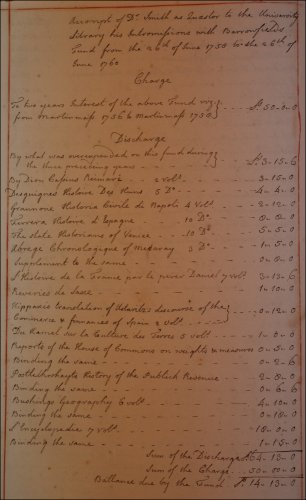 Accompt of Dr. Smith as Quastor to the University
Library his Intromissions with Barrowfields
Fund from the 26th of June 1750 to the 26th of
June 1760
Charge
To two years Interest of the above Fund vizt.
from Martinmass 1756 to Martinmass 1758 £ 50-0-0
Discharge
By what was overexpended on this fund during
the three preceeding years £ 3-15-6
By Dion Casius Reimari 2 voll 3-15-0
Desguignes Histoire Des Huns 5 Do 4-4-0
Giannone Historia Civile de Napoli 4 Voll 2-12-0
Ferrera Histoire d'Espagne 10 Do
The state Historians of Venice 10 Do 5-5-0
Abrege Chronologique of Mezaray 3 Do 1-5-0
Supplement to the same
L'Histoire de la France par le perer Daniel 7 voll 3-13-6
Reveries de Saxe 1-10-0
Hippaxis translation of Ustaritz's discourse of the
Commerse & finnances of Spain 2 Voll 0-12-0
Du Hamel sur la Culture des Terres 5 voll 1-0-0
Reports of the House of Commons on weights & measures 0-5-0
Binding the same 0-2-6
Postlethwayte History of the Publick Revenue 2-2-0
Binding the same 0-6-6
Bushings Geography 6 voll 4-10-0
Binding the same 0-18-0
L'Encyclopedie 7 voll 18-0-0
Binding the same 1-15-0
Sum of the Discharge £ 64-13-0
Sum of the Charge 50-00-0
Ballance due by the Fund £ 14-13-0